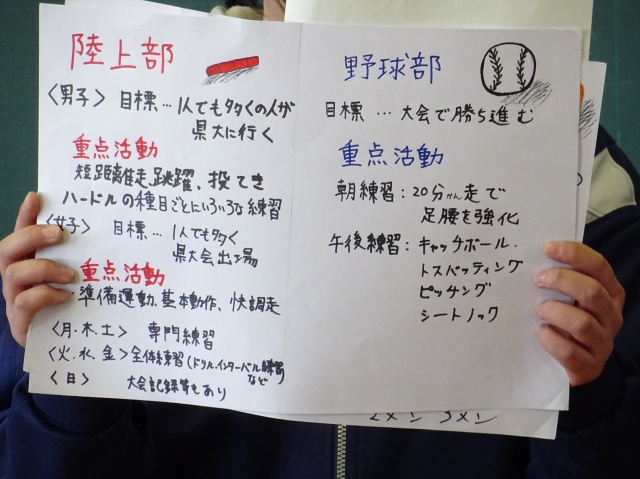 陸上部
〈男子〉 目標…1人でも多くの人が
県大に行く
重点活動
短距離走、跳躍、投てき
ハードルの種目ごとにいろいろな練習
〈女子〉 目標…1人でも多く
県大会出場
重点活動
・準備運動、基本動作、快調走
〈月・木・土〉 専門練習
〈火、水、金〉全体練習(ドリル、インターバル練習)
など
〈日〉 大会記録等もあり
野球部
目標 … 大会で勝ち進む
重点活動
朝練習:20分かん走で
足腰を強化
午後練習:キャッチボール・
トスバッティング
ピッチング
シートノック